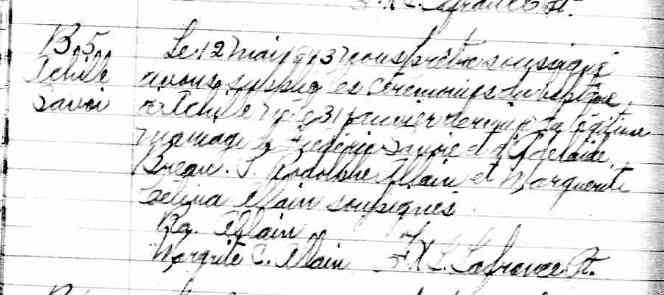 F. X. L. Lafrance Pt.
B. 5. Le 12 mai 1913 nous prêtre soussigné
Achile avons suppléé les cérémonies du baptême
Savoi à Achile né le 31 janvier dernier du légitime
mariage de Frédéric Savoie et d'Adelaide
Breau. P. Rodolphe Allain et Marguerite
Célina Allain soussignés.
Ro. Allain
Margrite C. Allain F. X. L. Lafrance Pt.